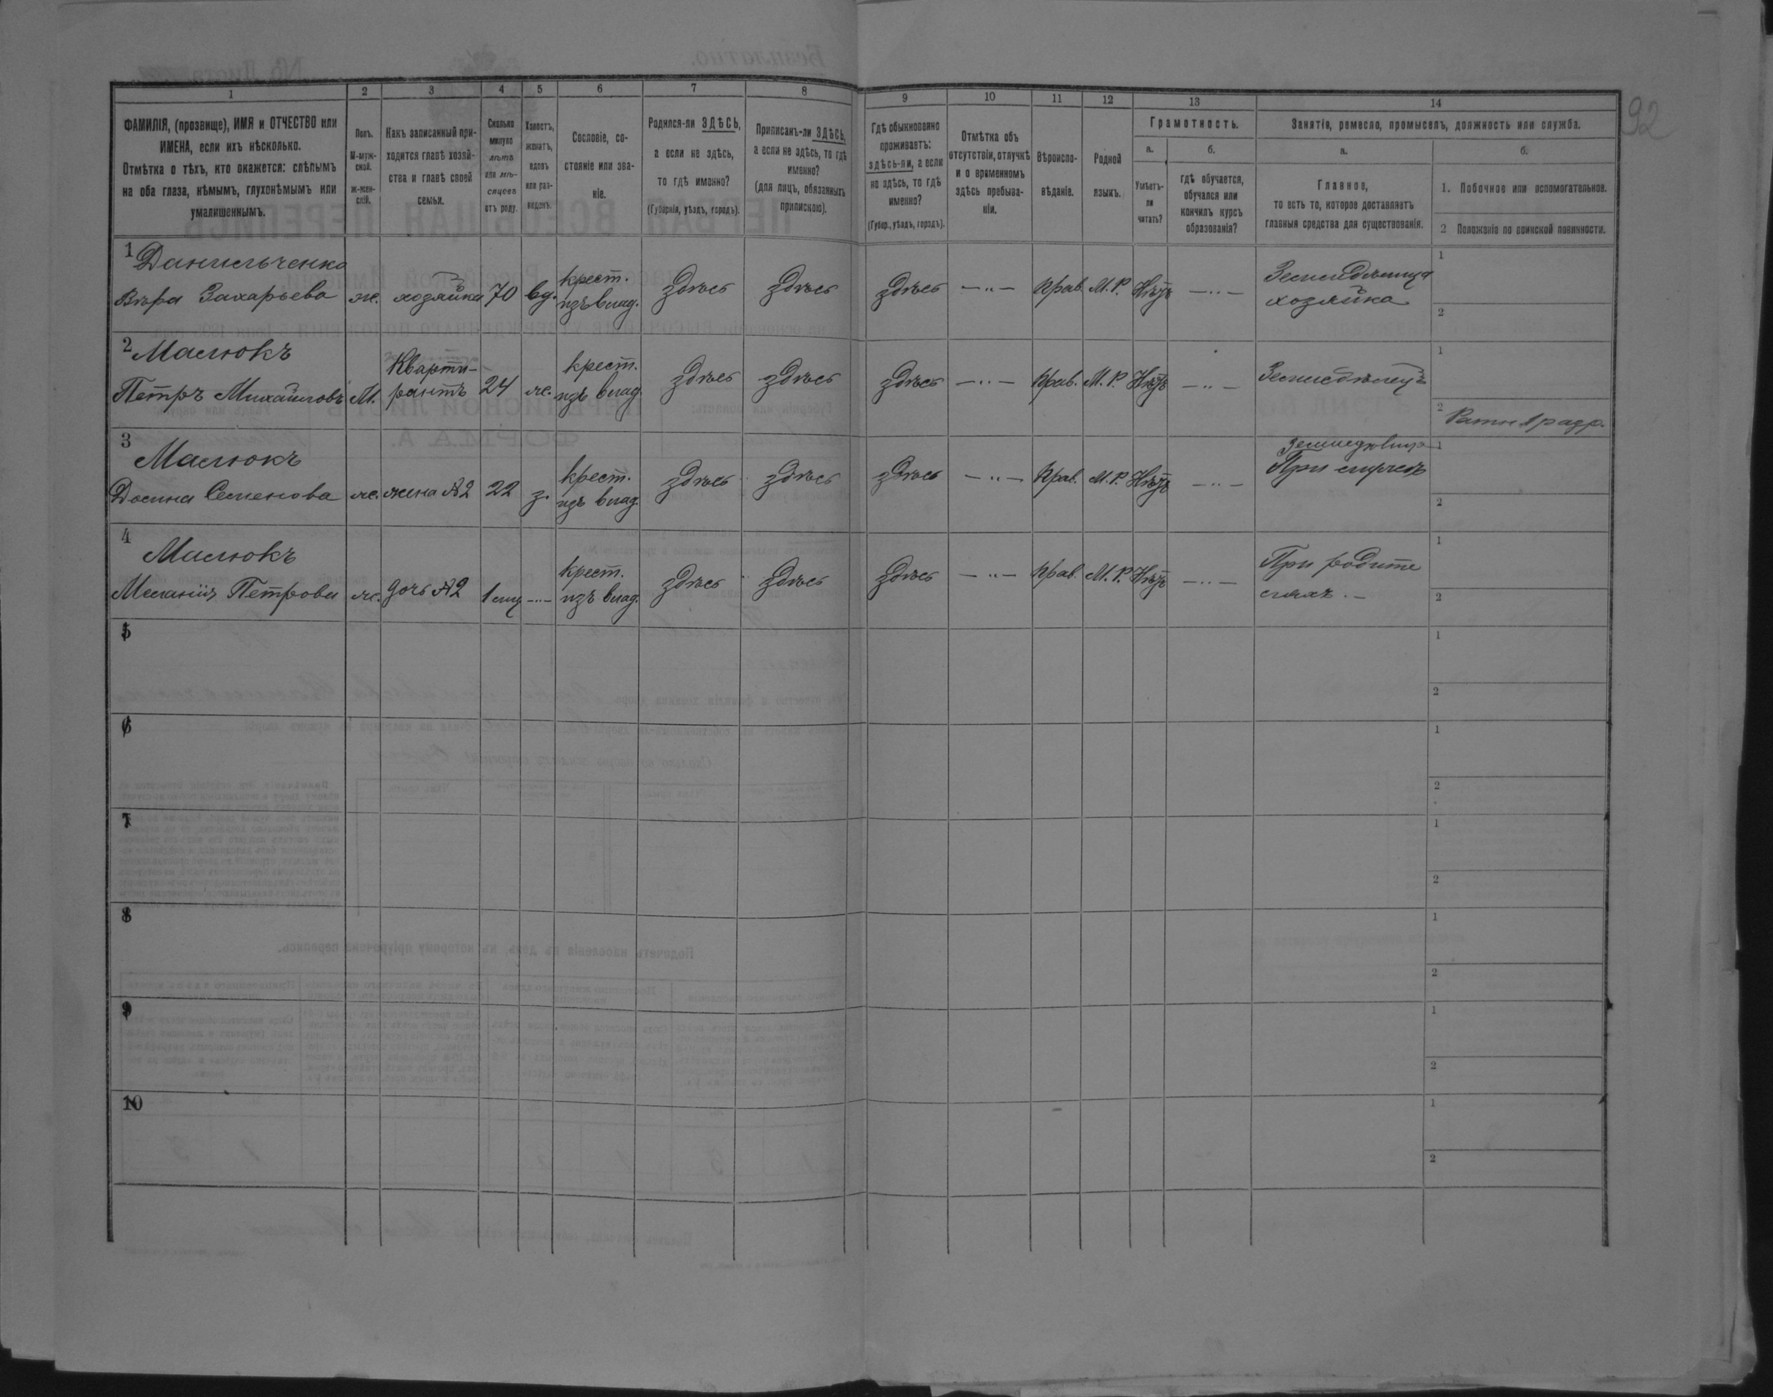 92
1 2 3 4 5 6 7 8 9 10 11 12 13 14
ФАМИЛІЯ, (прозвище), ИМЯ и ОТЧЕСТВО или
ИМЕНА, если ихъ нѣсколько.
Отмѣтка о тѣхъ, кто окажется: слѣпымъ
на оба глаза, нѣмымъ, глухонѣмымъ или
умалишеннымъ.
Полъ.
М-муж-
ской.
ж-жен-
скій.
Какъ записанный при-
ходится главѣ хозяй-
ства и главѣ своей
семьи.
Сколько
минуло
лѣтъ
или мѣ-
сяцевъ
отъ роду.
Холостъ,
женатъ,
вдовъ
или раз-
веденъ.
Сословіе, со-
стояніе или зва-
ніе.
Родился-ли ЗДѢСЬ,
а если не здѣсь,
то гдѣ именно?
(Губернія, уѣздъ, городъ).
Приписанъ-ли ЗДѢСЬ,
а если не здѣсь, то гдѣ
именно?
(для лицъ, обязанныхъ
припискою).
Гдѣ обыкновенно
проживаетъ:
здѣсь-ли, а если
не здѣсь, то гдѣ
именно?
(Губер., уѣздъ, городъ).
Отмѣтка объ
отсутствіи, отлучкѣ
и о временномъ
здѣсь пребыва-
ніи.
Вѣроиспо-
вѣданіе.
Родной
языкъ.
Грамотность.
а.
Умѣетъ-
ли
читать?
б.
гдѣ обучается,
обучался или
кончилъ курсъ
образованія?
Занятіе, ремесло, промыселъ, должность или служба.
а.
Главное,
то есть то, которое доставляетъ
главныя средства для существованія.
б.
1. Побочное или вспомогательное.
2 Положеніе по воинской повинности.
1 Данильченко
Вѣра Захарьева ж. хозяйка 70 вд. крест. изъ влад. здѣсь здѣсь здѣсь — " — Прав. М. Р. Нѣтъ — " — Земледѣлица хозяйка
1
2
2 Малюкъ
Петръ Михайловъ М. Кварти-
рантъ 24 ж. крест. изъ влад. здѣсь здѣсь здѣсь — " — Прав. М. Р. Нѣтъ — " — Земледѣлецъ
1
2 Ратн 1 разр.
3 Малюкъ
Семенова ж. жена №2 22 з. крест. изъ влад. здѣсь здѣсь здѣсь — " — Прав. М. Р. Нѣтъ — " —
При
1
2
4 Малюкъ
Петрова ж. дочь №2 1 крест. изъ влад. здѣсь здѣсь здѣсь — " — Прав. М. Р. Нѣтъ — " — При родите
ляхъ. —
1
2
5
1
2
6
1
2
7
1
2
8
1
2
9
1
2
10
1
2